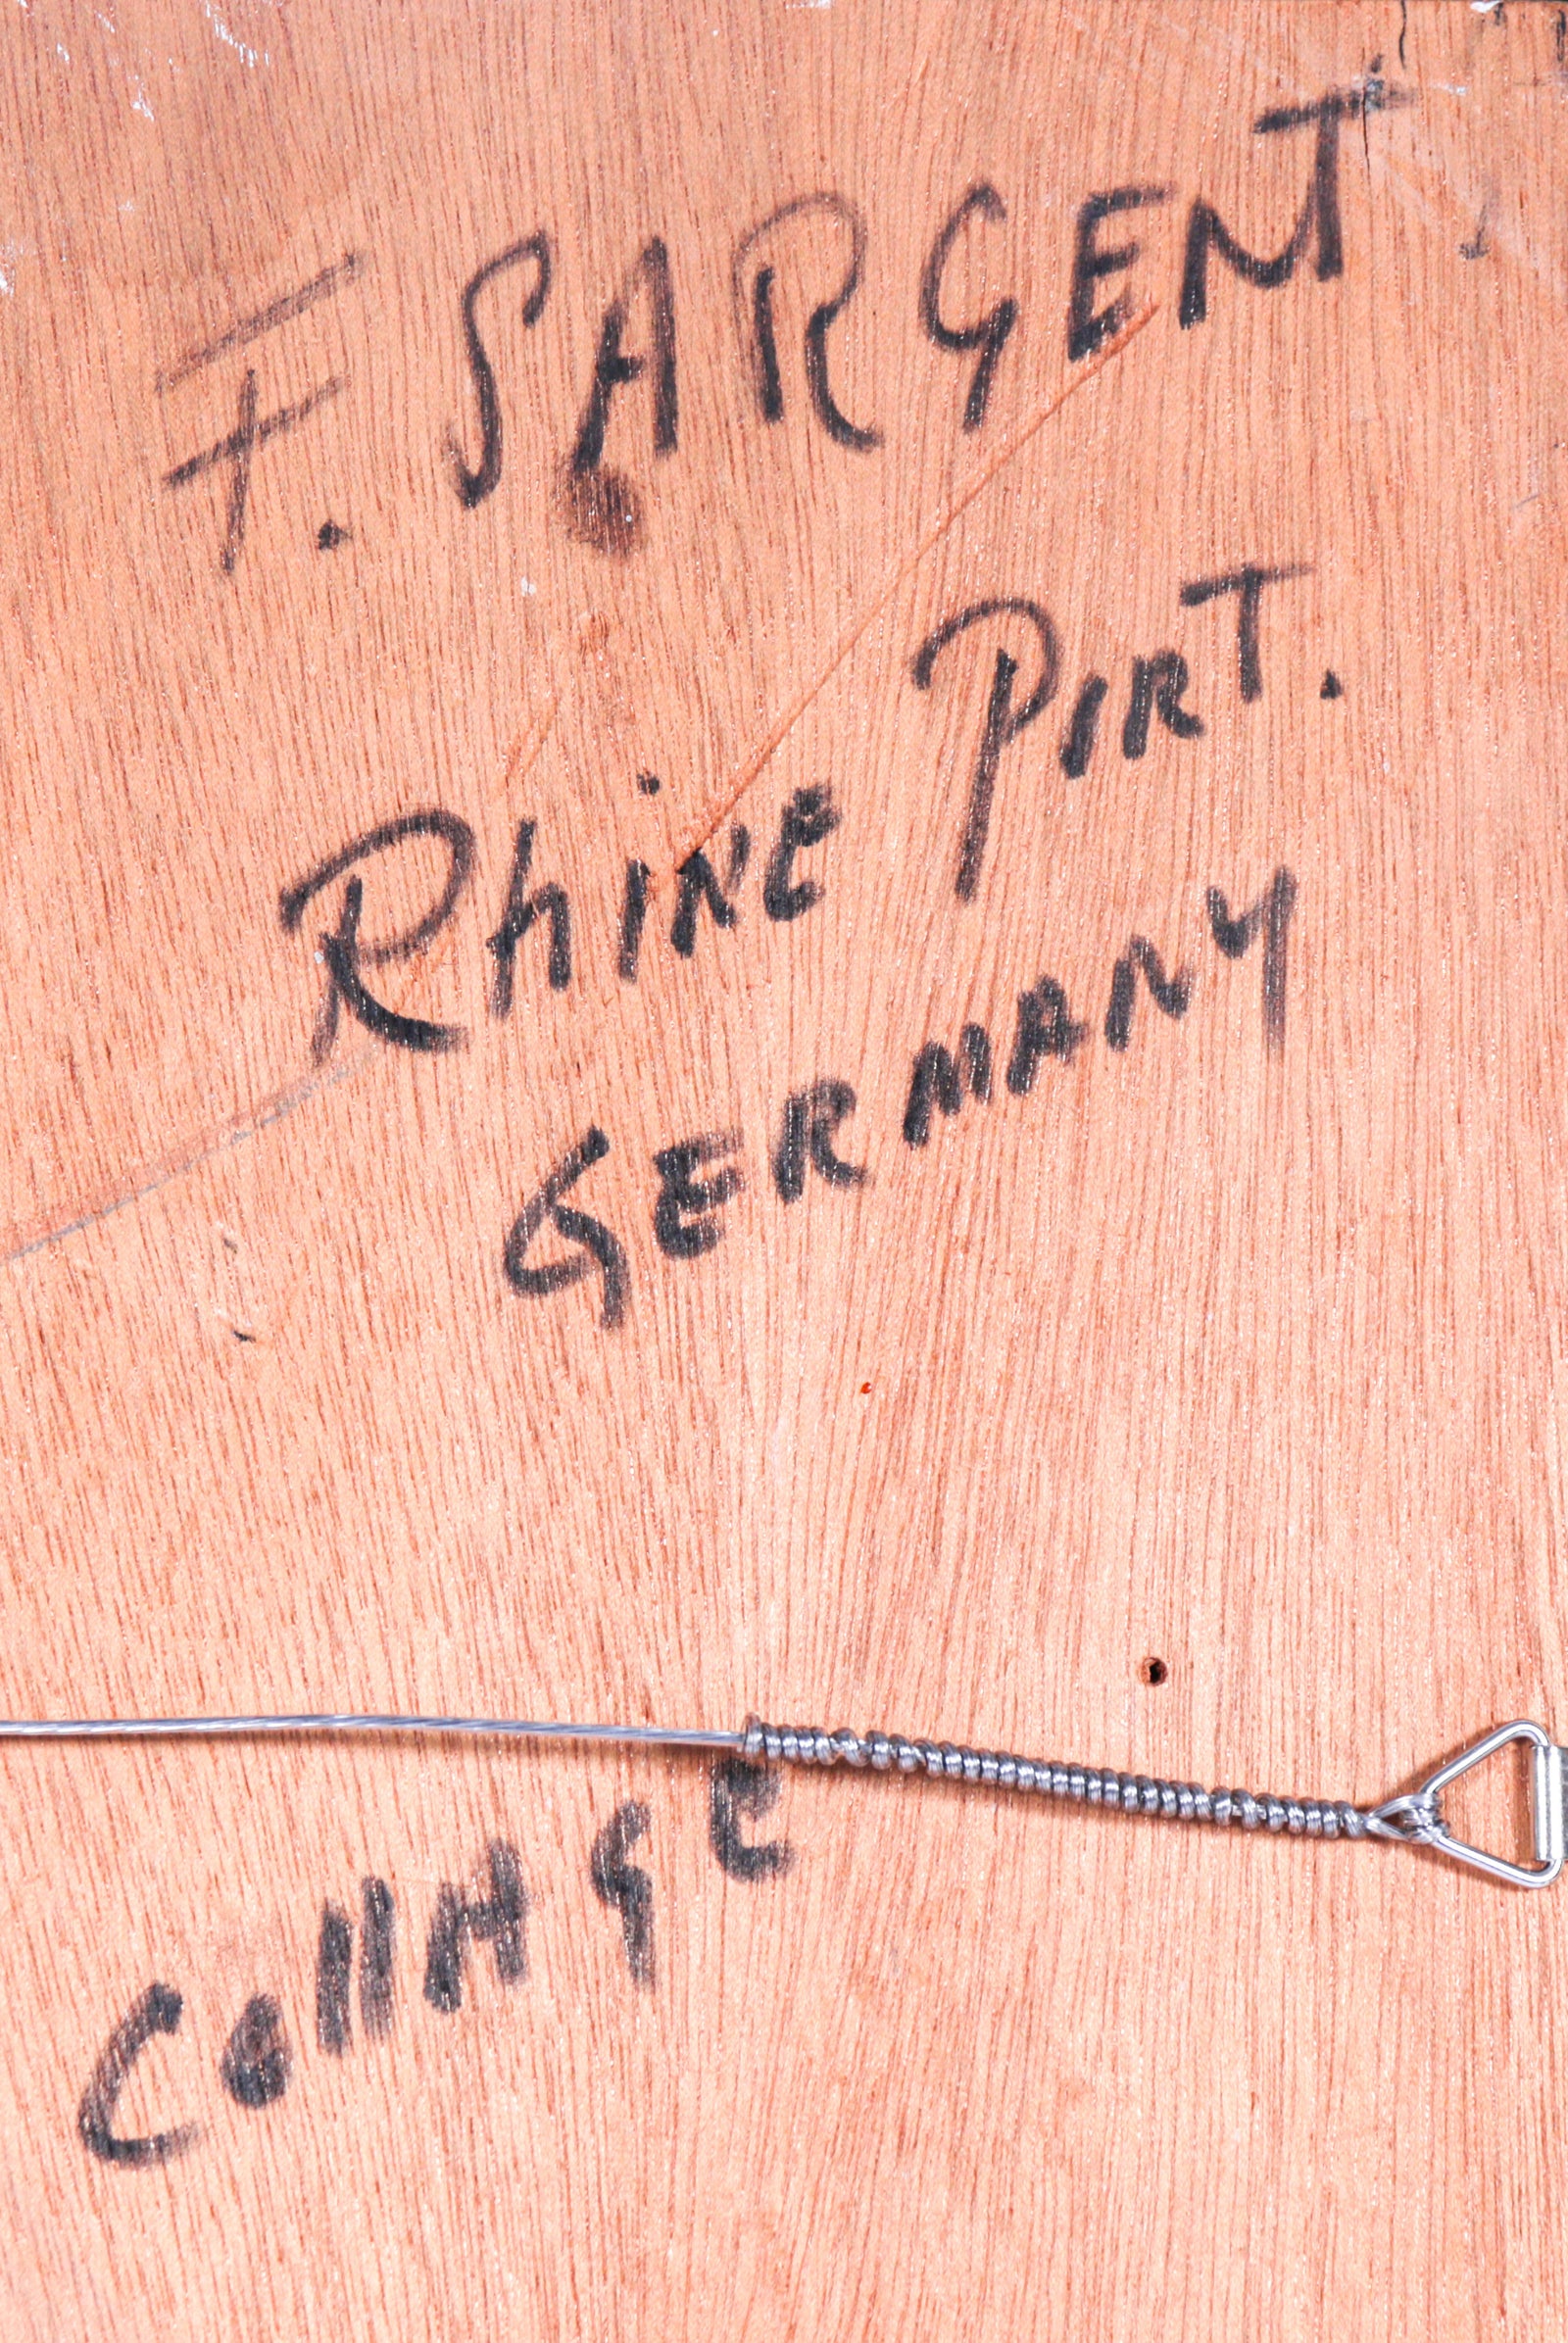 F. SARGENT
RhiNE PORT.
GERMANY
CollAGE